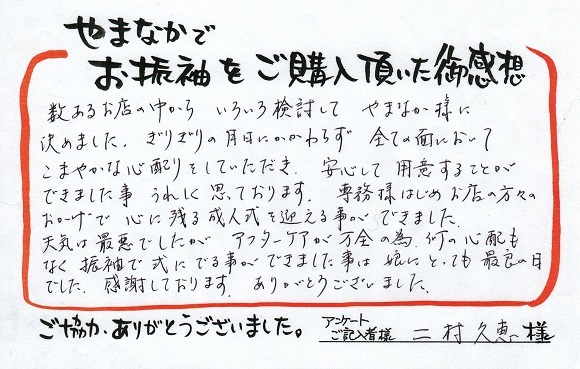 やまなかで
お振袖をご購入頂いた御感想
数あるお店の中から いろいろ検討して やまなか様に
決めました。ぎりぎりの月日にかかわらず 全ての面において
こまやかな心配りをしていただき、安心して用意することが
できました事 うれしく思っております。専務様はじめお店の方々の
おかげで 心に残る成人式を迎える事ができました。
天気は最悪でしたが アフターケアが万全の為、何の心配も
なく振袖で式にでる事ができました事は娘にとっても最良の日
でした。感謝しております。ありがとうございました。
ご協力、ありがとうございました。 アンケートご記入者様 二村久恵様